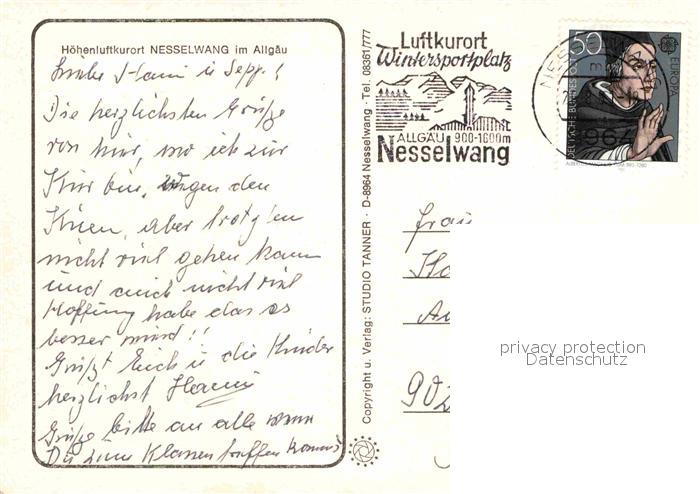 Höhenluftkurort NESSELWANG im Allgäu
Liebe Hanni u Sepp!
Die herzlichsten Grüße
von hier, wo ich zur
Kur bin, wegen den
Knien, aber trotzden
nicht viel gehen kann
und auch nicht viel
Hoffnung habe das es
besser wird!!
Grüßt Euch u die Kinder
herzlichst Hanni
Grüße bitte an alle wenn
Du zum Klassentreffen kommst
Copyright u. Verlag: STUDIO TANNER · D-8964 Nesselwang · Tel. 08361/777
Luftkurort
Wintersportplatz
ALLGÄU 900-1600m
Nesselwang
50
EUROPA
DEUTSCHE BUNDESPOST
8964
Frau
902
privacy protection
Datenschutz